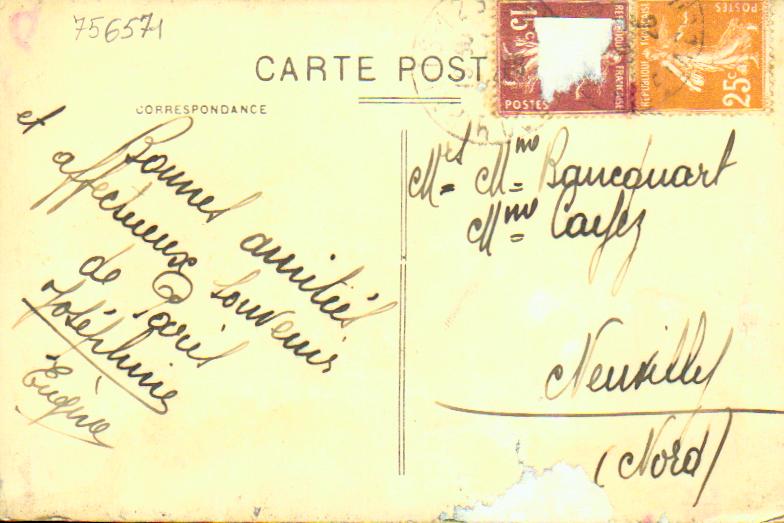 756571
CARTE POST
CORRESPONDANCE
15c
POSTES
REPUBLIQUE FRANÇAISE
25c
Bonnes amitiés
et affectueux souvenir
de Paris
Joséphine
Eugène
Mr et Mme Bancquart
Mme
Neuvilly
(Nord)